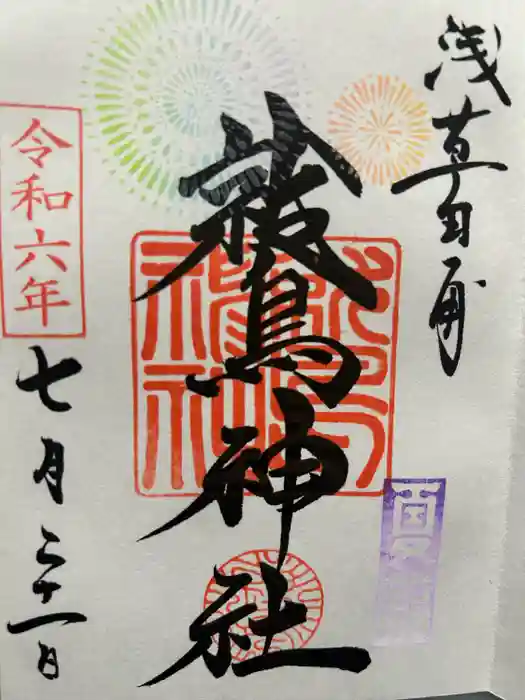 浅草田甫
鷲神社
令和六年
七月二十一日
夏